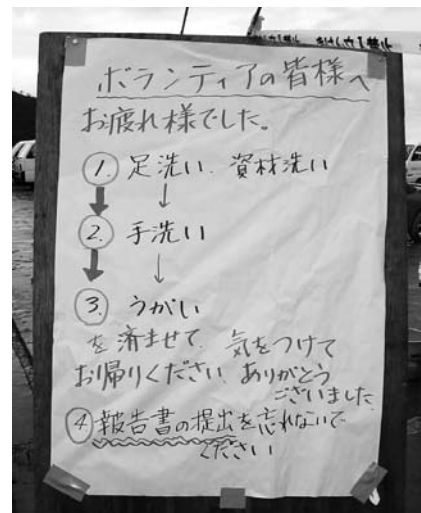 ボランティアの皆様へ
お疲れ様でした。
1. 足洗い、資材洗い
↓
2. 手洗い
↓
3. うがい
を済ませて、気をつけて
お帰りください。ありがとう
ございました
4. 報告書の提出を忘れないで
ください